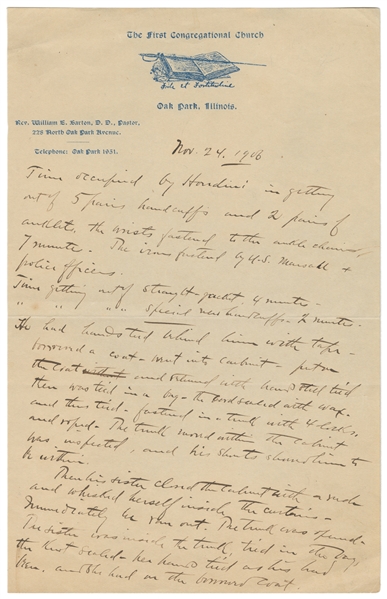 The First Congregational Church
Oak Park, Illinois.
Rev. William E. Barton, D. D., Pastor,
228 North Oak Park Avenue.
Telephone: Oak Park 1631.
Nov. 24. 1906
Time occupied by Houdini in getting
out of 5 pairs handcuffs and 2 pairs of
anklets, the wrists fastened to the ankle chains,
7 minutes. The irons fastened by U.S. Marsall +
police officers.
Time getting out of straight-jacket 4 minutes.
" " " " special new handcuffs 2 minutes.
He had hands tied behind him with tape-
borrowed a coat - went into cabinet - put on
the coat and returned with hands tied tied
then was tied in a bag - the cord sealed with wax.
and this tied - fastened in a trunk with 4 locks,
and roped. The trunk moved within the cabinet
was inspected, and his shouts showed him to
be within.
Then his sister closed the cabinet with a rush
and whisked herself inside the curtains -
Immediately he ran out. The trunk was opened -
The sister was inside the trunk, tied in the bag,
the knot sealed - her hands tied as his had
been. and she had on the borrowed coat.